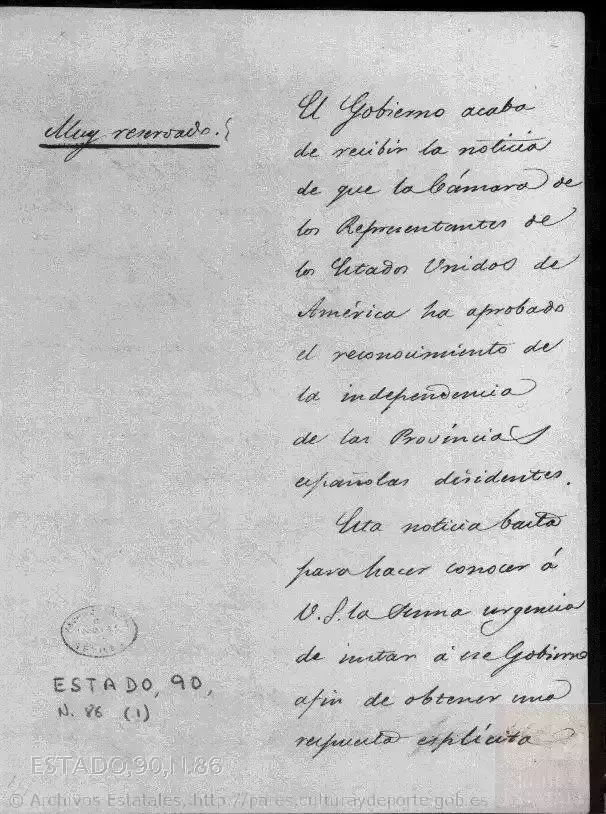 Muy reservado.
El Gobierno acaba
de recibir la noticia
de que la Cámara de
los Representantes de
los Estados Unidos de
América ha aprobado
el reconocimiento de
la independencia
de las Provincias
españolas disidentes.
Esta noticia basta
para hacer conocer á
V. S. la suma urgencia
de instar á ese Gobierno
afin de obtener una
respuesta esplícita
ESTADO, 90,
N. 86 (1)
ESTADO,90,N.86
© Archivos Estatales, http://pares.culturaydeporte.gob.es